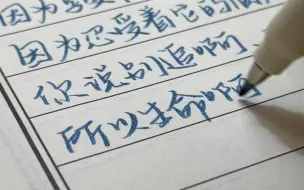 因为
因为忍受着它的
你说别追啊
所以生命啊